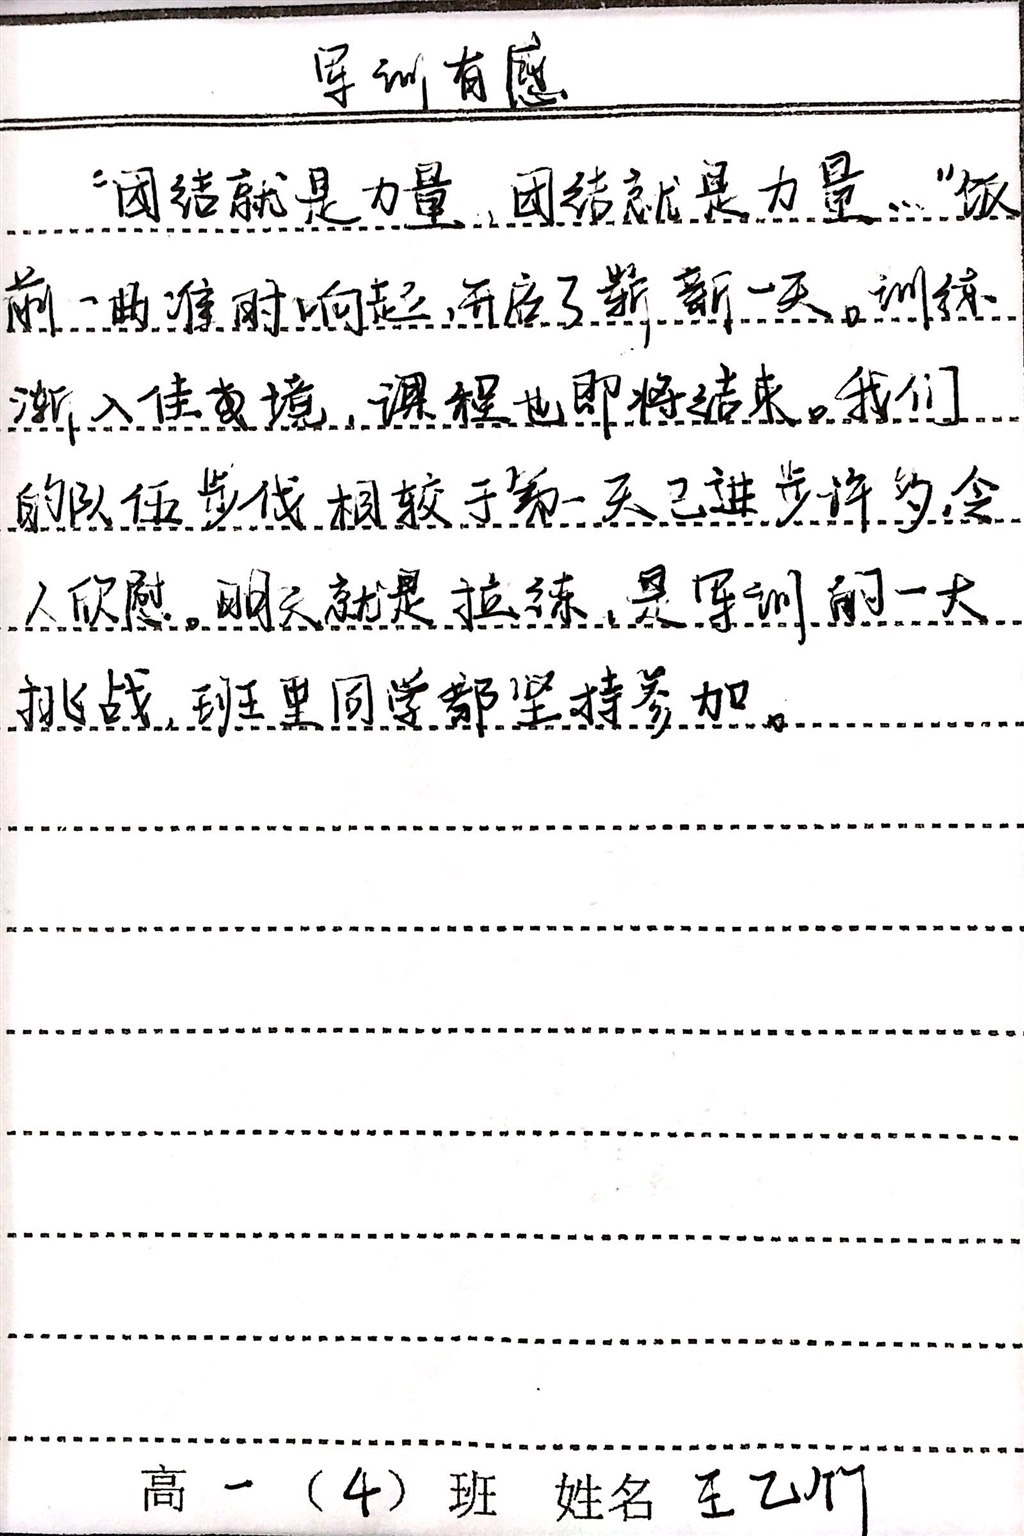 军训有感
“团结就是力量，团结就是力量…”饭
前一曲准时响起，开启了崭新一天。训练
渐入佳境，课程也即将结束。我们
的队伍步伐相较于第一天已进步许多，令
人欣慰。明天就是拉练，是军训的一大
挑战，班里同学都坚持参加。
高一（4）班 姓名 王乙